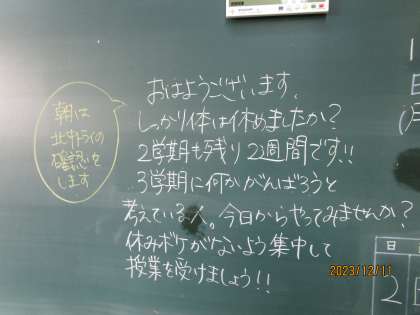 おはようございます。
しっかり体は休めましたか?
2学期も残り2週間です!!
3学期に何かがんばろうと
考えている人。今日からやってみませんか?
休みボケがないよう集中して
授業を受けましょう!!
朝は
北中トライの
確認をします
2023/12/11
日
2